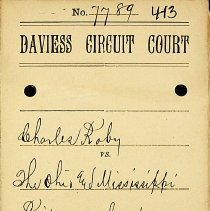 No. 7789 413
DAVIESS CIRCUIT COURT
Charles Roby
VS.
The Ohio and Mississippi